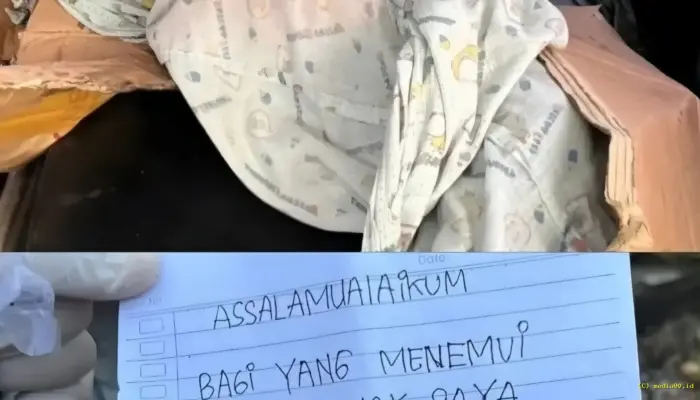 Date
ASSALAMUALAIKUM
BAGI YANG MENEMUI
SAYA
(C) media99.id